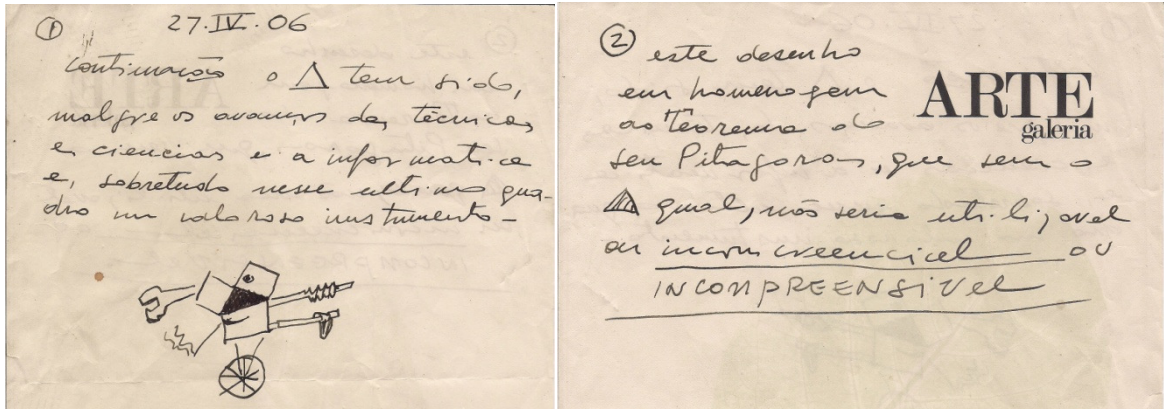 ① 27.IV.06
continuação o △ tem sido,
malgre os avanços das técnicas
e, ciencias e a informatica
e, sobretudo nesse ultimo qua-
dro um valoroso instrumento-
② este desenho
em homenagem
ao Teorema do
seu Pitagoras, que sem o
△ qual, não seria utilizavel
ou inconcreencicel ou
INCOMPREENSIVEL
ARTE
galeria